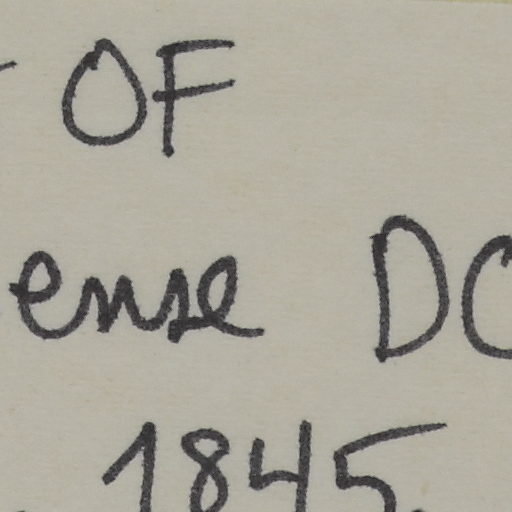 OF
ense DC
1845